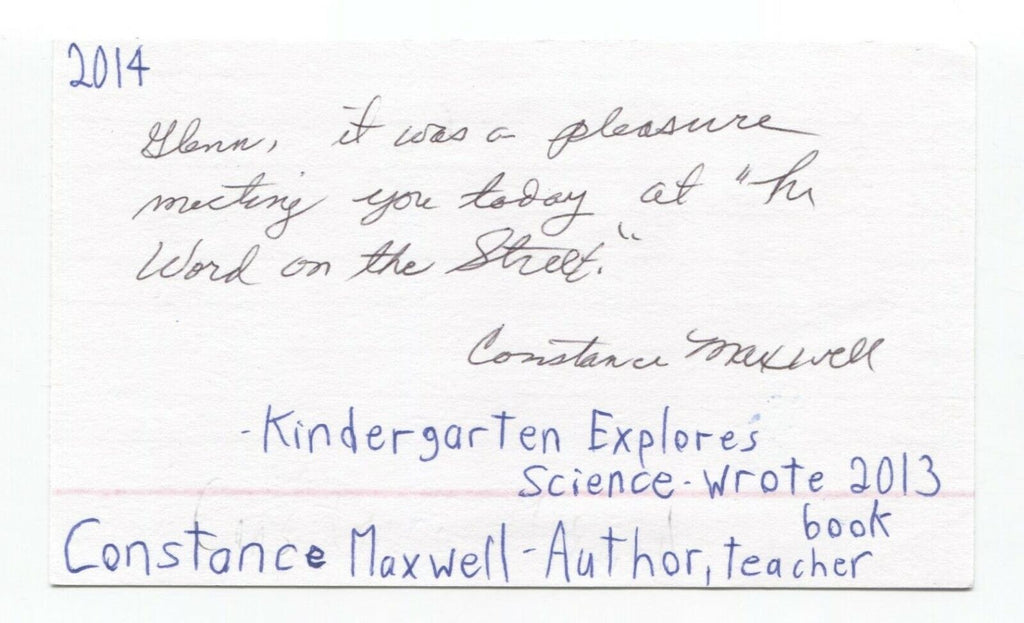 2014
Glenn, it was a pleasure
meeting you today at "The
Word on the Street."
Constance Maxwell
-Kindergarten Explores
Science-wrote 2013
book
Constance Maxwell-Author, teacher